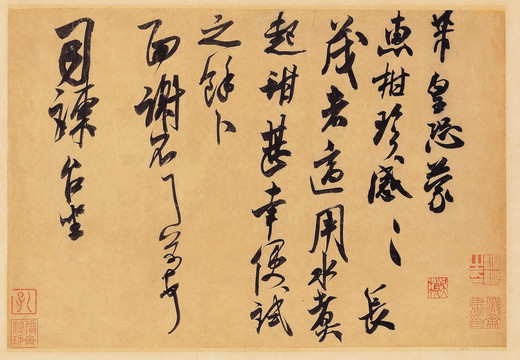 芾皇恐蒙
惠柑珍感〻長
茂者適用水煮
起甜甚幸便試
之餘卜
面謝不一一芾頓首
司諫台坐